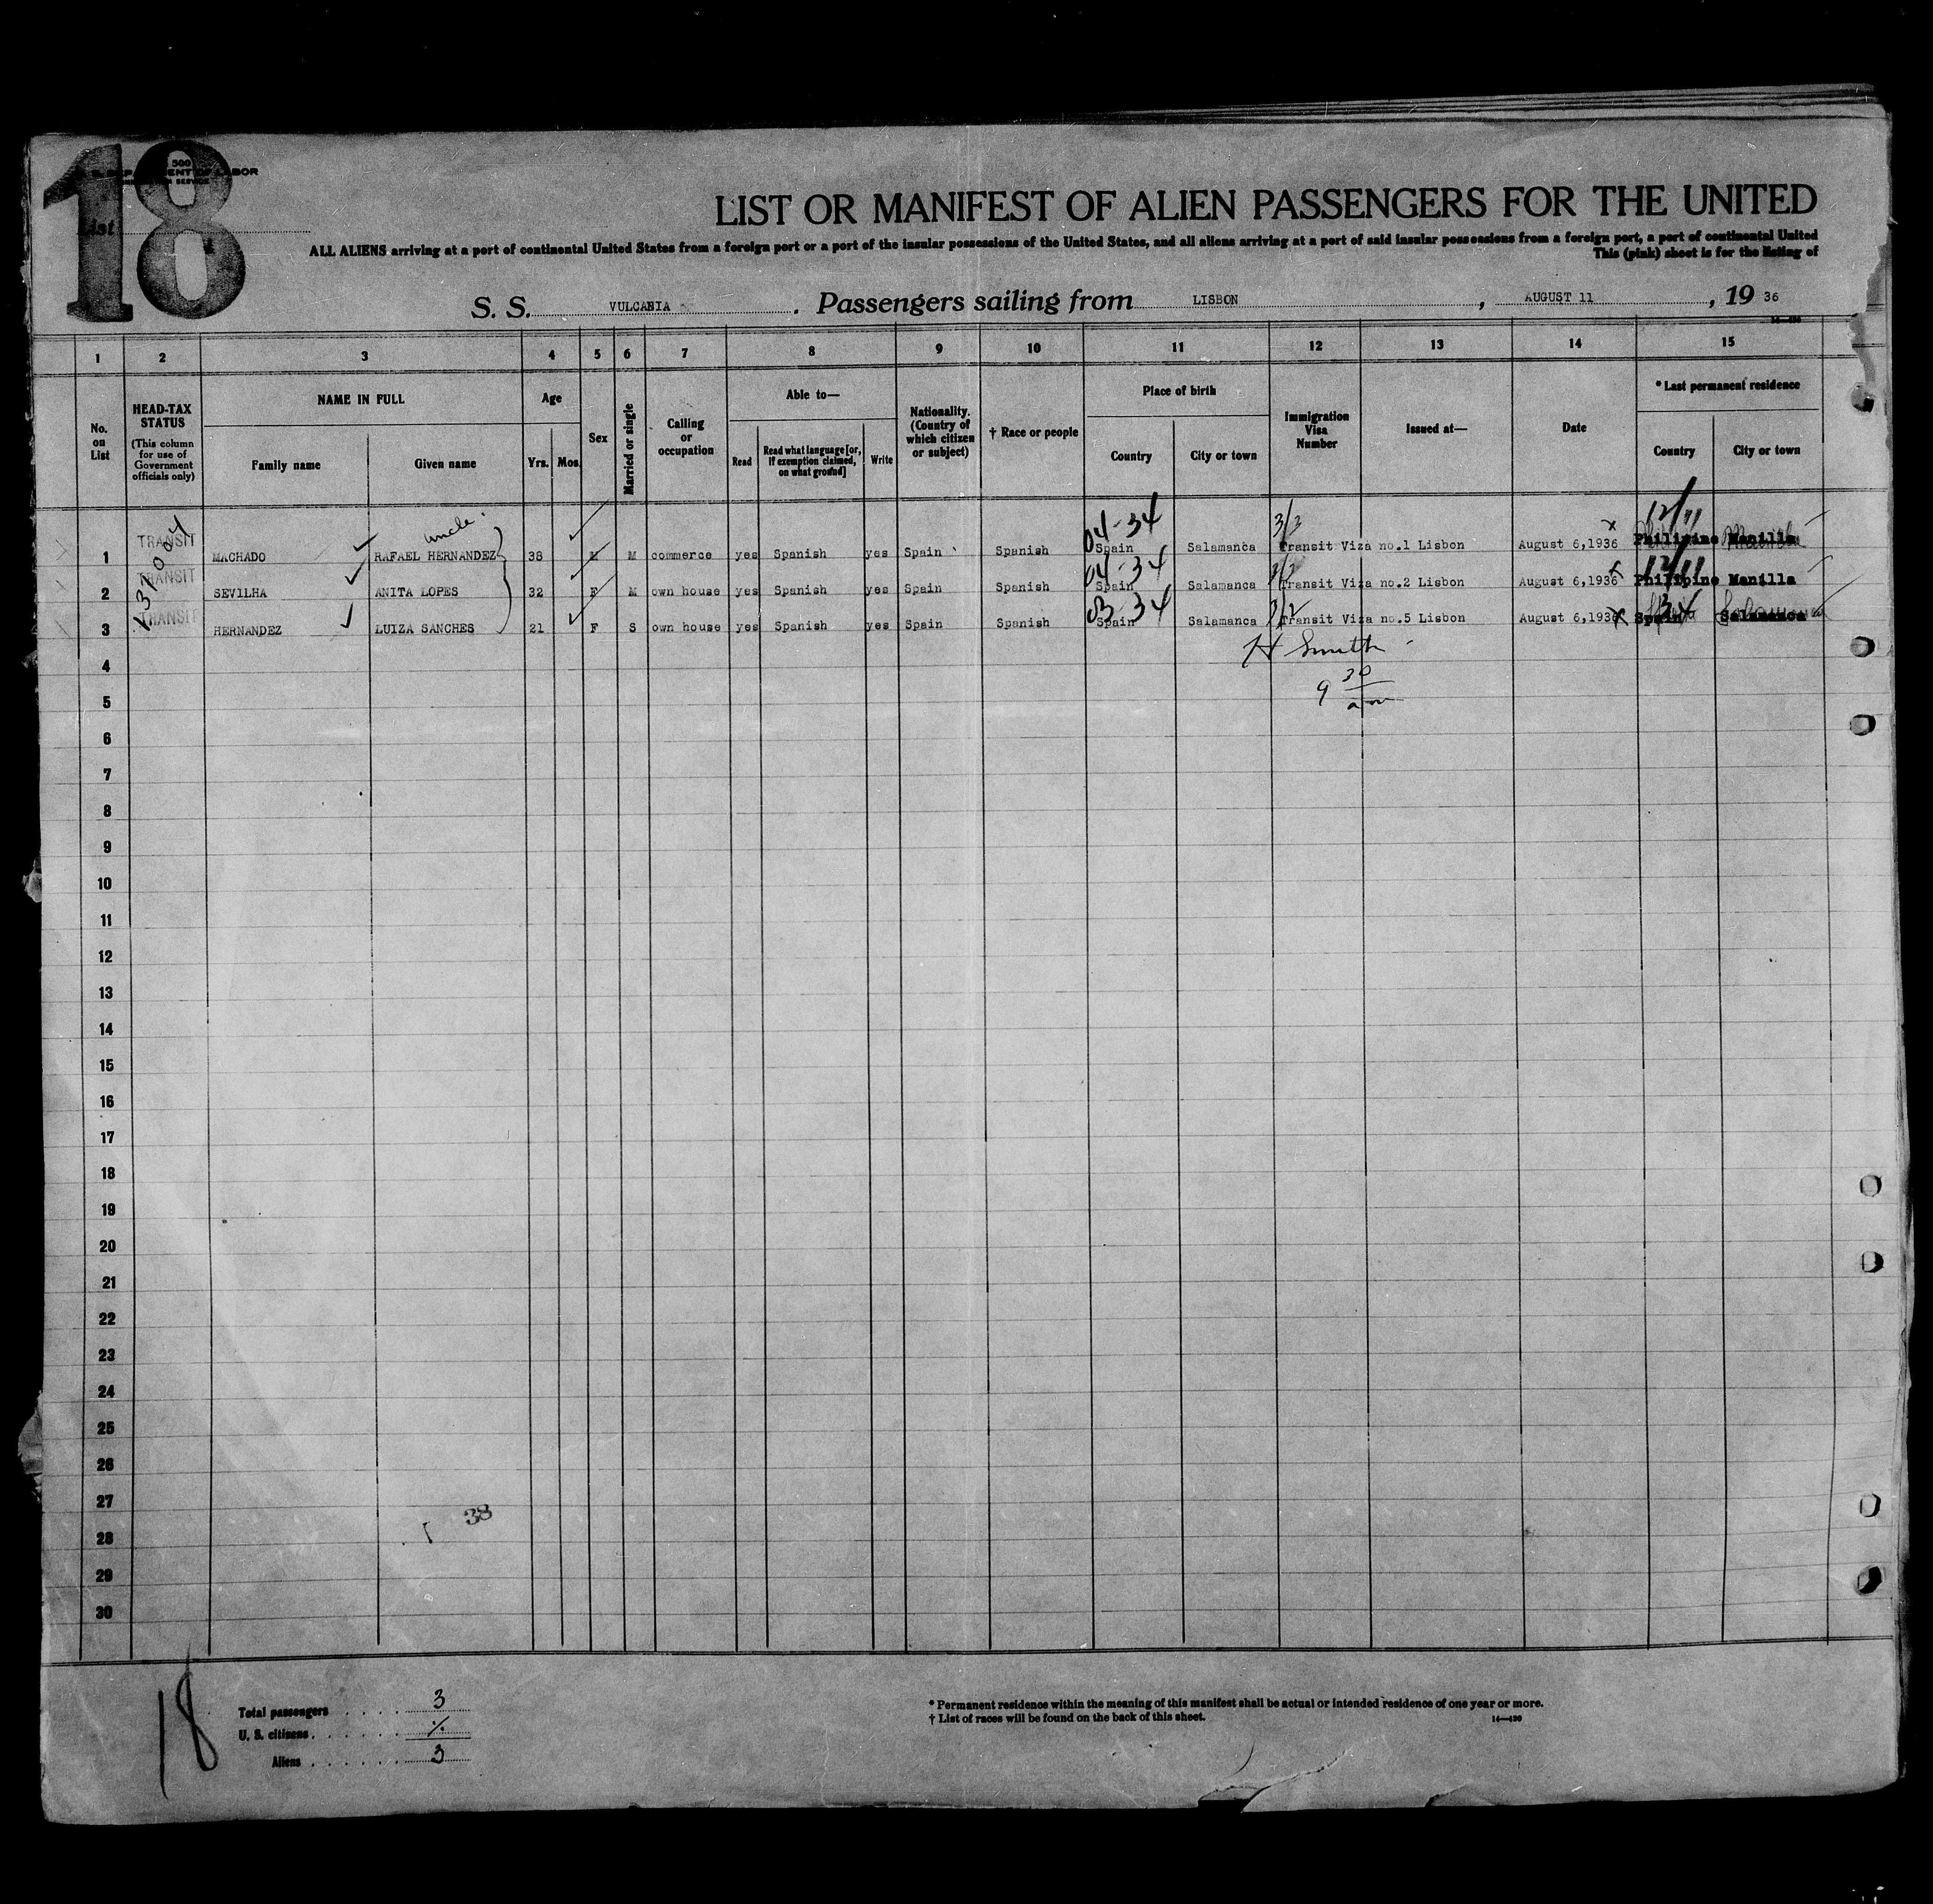 18
500
List
LIST OR MANIFEST OF ALIEN PASSENGERS FOR THE UNITED
ALL ALIENS arriving at a port of continental United States from a foreign port or a port of the insular possessions of the United States, and all aliens arriving at a port of said insular possessions from a foreign port, a port of continental United
This (pink) sheet is for the listing of
S. S. VULCANIA . Passengers sailing from LISBON , AUGUST 11 , 19 36
1 2 3 4 5 6 7 8 9 10 11 12 13 14 15
No. on List
HEAD-TAX STATUS
(This column for use of Government officials only)
NAME IN FULL
Family name Given name
Age
Yrs. Mos.
Sex
Married or single
Calling or occupation
Able to—
Read
Read what language [or, if exemption claimed, on what ground]
Write
Nationality. (Country of which citizen or subject)
† Race or people
Place of birth
Country City or town
Immigration Visa Number
Issued at—
Date
* Last permanent residence
Country City or town
uncle.
04-34 3/3 12/11
1 TRANSIT MACHADO RAFAEL HERNANDEZ 38 M M commerce yes Spanish yes Spain Spanish Spain Salamanca Transit Viza no.1 Lisbon August 6,1936 Philipine Manilla
04-34 12/11
2 TRANSIT SEVILHA ANITA LOPES 32 F M own house yes Spanish yes Spain Spanish Spain Salamanca Transit Viza no.2 Lisbon August 6,1936 Philipine Manilla
03-34 34
3 TRANSIT HERNANDEZ LUIZA SANCHES 21 F S own house yes Spanish yes Spain Spanish Spain Salamanca Transit Viza no.5 Lisbon August 6,1936 Spain Salamanca
H Smith
4
9 30 am
5
6
7
8
9
10
11
12
13
14
15
16
17
18
19
20
21
22
23
24
25
26
27
38
28
29
30
18
Total passengers 3
U. S. citizens
Aliens 3
* Permanent residence within the meaning of this manifest shall be actual or intended residence of one year or more.
† List of races will be found on the back of this sheet.